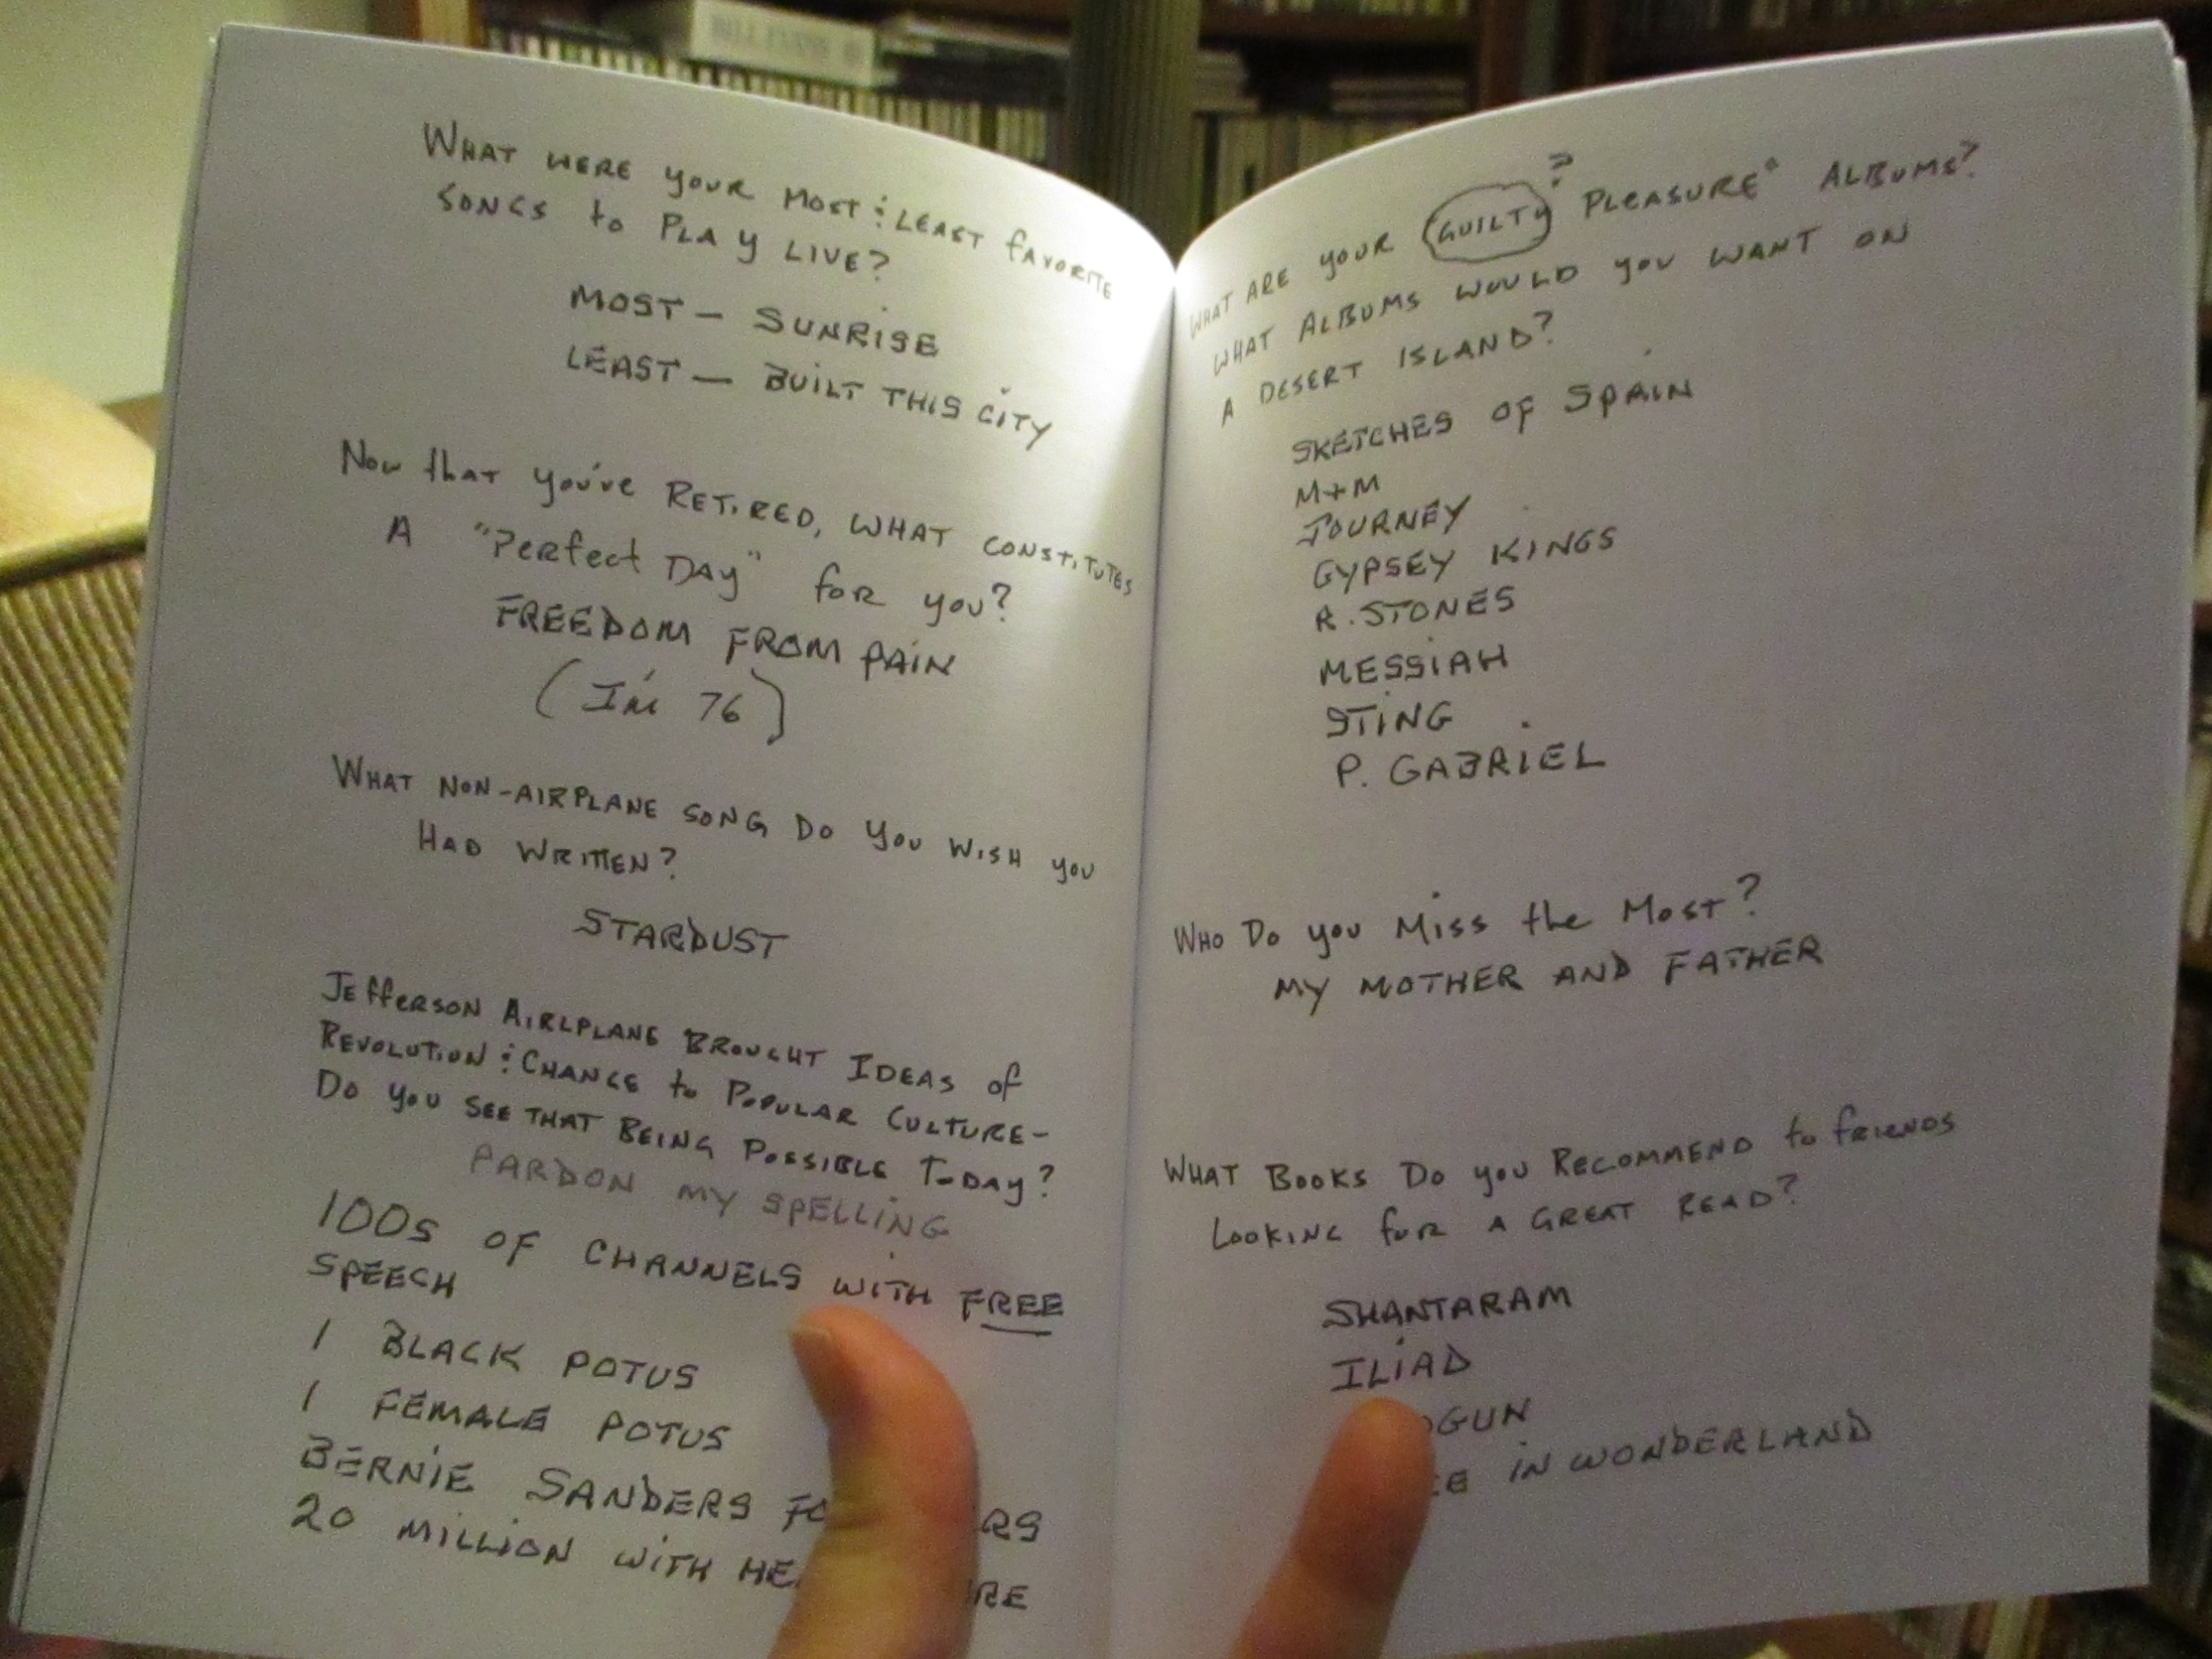 BILL EVANS
WHAT WERE YOUR MOST & LEAST FAVORITE
SONGS to PLAY LIVE?
MOST — SUNRISE
LEAST — BUILT THIS CITY
Now that you've RETIRED, WHAT CONSTITUTES
A "Perfect DAY" for you?
FREEDOM FROM PAIN
(I'm 76)
WHAT NON-AIRPLANE SONG DO YOU WISH YOU
HAD WRITTEN?
STARDUST
JEffERSON AIRLPLANE BROUGHT IDEAS of
REVOLUTION & CHANGE to POPULAR CULTURE-
DO YOU SEE THAT BEING POSSIBLE TODAY?
PARDON MY SPELLING
100s OF CHANNELS WITH FREE
SPEECH
1 BLACK POTUS
1 FEMALE POTUS
BERNIE SANDERS
20 MILLION WITH
WHAT ARE YOUR "GUILTY? PLEASURE" ALBUMS?
WHAT ALBUMS WOULD YOU WANT ON
A DESERT ISLAND?
SKETCHES OF SPAIN
M+M
JOURNEY
GYPSEY KINGS
R. STONES
MESSIAH
STING
P. GABRIEL
WHO DO you MISS the MOST?
MY MOTHER AND FATHER
WHAT BOOKS DO you RECOMMEND to fRIENDS
LOOKING for A GREAT READ?
SHANTARAM
ILIAD
OGUN
CE IN WONDERLAND